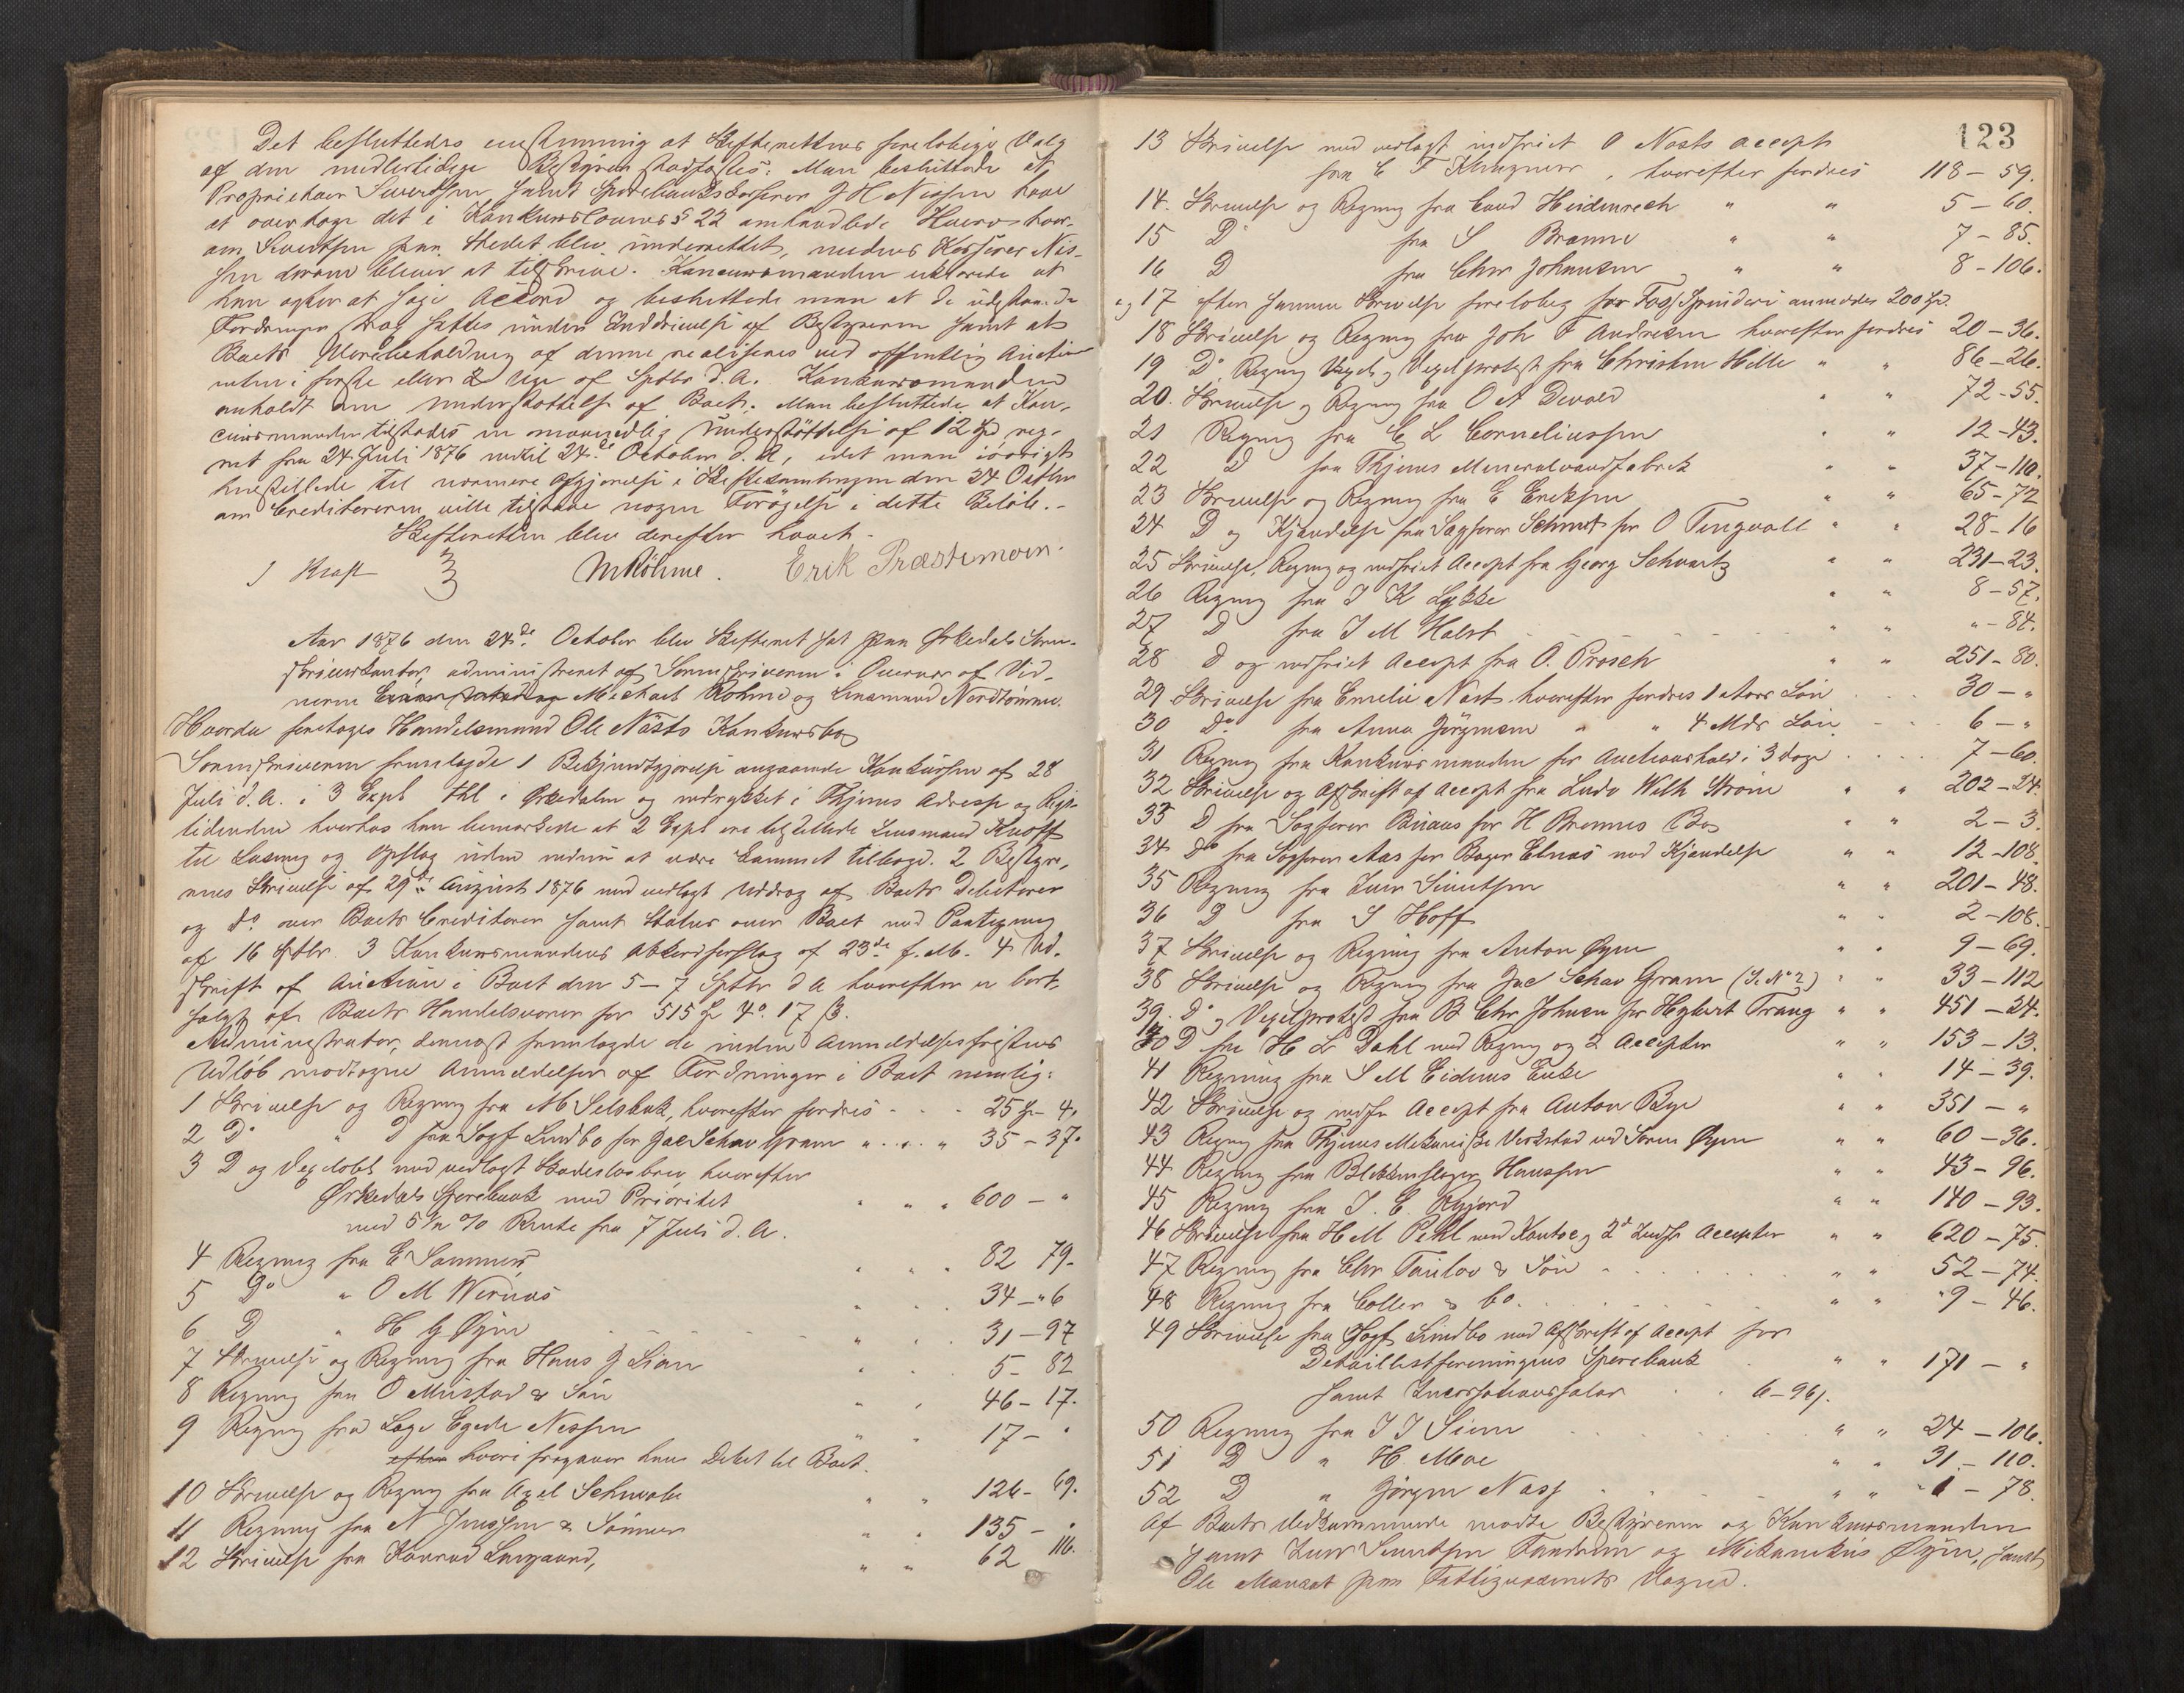 Det besluttedes enstemmig at Skifterettens foreløbige Valg
af den midlertidige Bestyrer stadfæstes. Man besluttede at
Proprietær Sivertsen samt Sparebankskasserer J H Nissen havde
at overtage det i Konkurslovens § 22 omhandlede Hverv, hvor-
om Sivertsen paa Stedet blev underrettet, medens Kasserer Nis-
sen derom bliver at tilskrive. Concursmanden erklærede at
han agter at søge Accord og besluttede man at de udestaaende
Fordringer strax sættes under Inddrivelse af Bestyreren samt at
Boets Varebeholdning af denne realiseres ved offentlig Auction
enten i første eller 2 Uge af Septbr d. A. Konkursmanden
anholdt om Understøttelse af Boet. Man besluttede at Kon-
cursmanden tilstodes en maanedlig Understøttelse af 12 Spd reg-
net fra 24 Juli 1876 indtil 24de October d. A, idet man iøvrigt
henstillede til nærmere Afgjørelse i Skiftesamlingen den 24 Octbr
om Creditorerne ville tilstaae nogen Forøgelse i dette Beløb. -
Skifteretten blev derefter hævet -
J Kraft MKöhme. Erik Præstemoen.
Aar 1876 den 24de October blev Skifteret sat paa Ørkedals Soren-
skriverkontor, administreret af Sorenskriveren i Overvær af Vid-
nerne Michael Kohme og Lensmand Nordtømme.
Hvorda foretoges Handelsmand Ole Næsto Konkursbo
Sorenskriveren fremlagde 1 Bekjendtgjørelse angaaende Konkursen af 28
Juli d. A. i 3 Expl thl i Ørkedalen og indrykket i Thjems Adresse og Rigs-
tidenden hvorhos han bemærkede at 2 Expl ere tilstillede Lensmand Knoff
til Læsning og Opslag uden endnu at være kommet tilbage. 2 Bestyre-
rens Skrivelse af 29de August 1876 med vedlagt Uddrag af Boets Debitorer
og Do over Boets Creditorer samt Status over Boet med Paategning
af 16 Septbr. 3 Konkursmandens Akkordforslag af 23de f. M. 4 Ud-
skrift af Auction i Boet den 5 – 7 Septbr d A hvorefter er bort-
solgt af Boets Handelsvarer for 515 Spd 4o. 17 ß.
Administrator, dernæst fremlagde de inden Anmeldelsesfristens
Udløb modtagne Anmeldelser af Fordringer i Boet nemlig:
1 Skrivelse og Regning fra M Selsbak, hvorefter fordres - - - 25 Sp – 4.
2 Do " D fra Sagf Lindbo for Jac Schav Gram " . " . " 35 – 37.
3 D og Vexelobl med vedlagt Skadesløsbrev hvorefter
Ørkedals Sparebank med Prioritet " " " 600 – "
med 5½ % Rente fra 7 Juli d. A.
4 Regning fra E Sommers " " " 82 79.
5 Do " O M Wernæs " " . 34 – " 6
6 D " H G Øyen " " . 31 – 97
7 Skrivelse og Regning fra Hans J Lian " . . 5 - 82
8 Regning fra O Mustad & Søn " " 46 – 17.
9 Regning fra Læge Egede Nissen " " 17 – "
efter hvori fragaaer hans Debet til Boet.
10 Skrivelse og Regning fra Axel Schwabe " " 126 – 69.
11 Regning fra N Jenssen & Sønner " " 135 – "
12 Skrivelse fra Konrad Langaard, " " 62 116.
123
13 Skrivelse med vedlagt indfriet O Næsts Accept
fra C F Klingner, hvorefter fordres 118 – 59.
14. Skrivelse og Regning fra Cand Heidenreich " " 5 – 60.
15 Do fra S Bramne " " 7 – 85.
16 D fra Chr Johansen " " 8 – 106.
og 17 efter samme Skrivelse foreløbig for Togs Spinderi anmeldes 200 Sp.
18 Skrivelse og Regning fra Joh F Andresen hvorefter fordres 20 – 36.
19 Do. Regning Vexel og Vexelprotest fra Christen Hille " " 86 – 26.
20. Skrivelse og Regning fra O A Devold " " 72 – 55.
21 Regning fra C L Corneliussen " " 12 – 43.
22 D fra Thjems Mineralvandfabrik " " 37 – 110.
23 Skrivelse og Regning fra E Eriksen " " 65 – 72
24 D og Kjendelse fra Sagfører Schmidt for O Tingvoll " " 28 – 16
25 Skrivelse, Regning og indfriet Accept fra Georg Schwartz " " 231 – 23.
26 Regning fra J K Lykke " " 8 – 57.
27 D fra J M Holst " " " – 84.
28 D og indfriet Accept fra O. Prosch " " 251 – 80.
29 Skrivelse fra Emelie Næst hvorefter fordres 1 Aars Løn . . . 30 – "
30 Do fra Anna Jørgensen " " 4 Mdr Løn - - - 6 – "
31 Regning fra Konkursmanden for Auctionshold i 3 Dage . . . . 7 – 60.
32 Skrivelse og Afskrift af Accept fra Ludv Wilh Strøm " " 202 – 24.
33 D fra Sagfører Buaas for H Bremnes Bo " " 2 – 3.
34 Do fra Sagfører Aas for Bager Elnæs med Kjendelse " " 12 – 108.
35 Regning fra Iver Sivertsen " " 201 – 48.
36 D fra S Hoff " " 2 – 108.
37 Skrivelse og Regning fra Anton Øyen " " 9 – 69.
38 Skrivelse og Regning fra Jac Schav Gram (S. No 2) " " 33 – 112
39. Do og Vexelprotest fra B Chr Johnsen for Hybert Trang " " 451 – 24.
40 D fra H L Dahl med Regning og 2 Accepter " " 153 – 13.
41 Regning fra S M Eidems Enke " " 14 – 39.
42 Skrivelse og indfr Accept fra Anton Bye " " 351 – "
43 Regning fra Thjems Mekaniske Verksted ved Søren Øyen " " 60 – 36.
44 Regning fra Blikkenslager Hanssen " " 43 – 96.
45 Regning fra J. E. Ryjord " " 140 – 93.
46 Skrivelse fra H M Pehl med Konto og 2de Indfr Accepter " " 620 – 75.
47 Regning fra Chr Taulov & Søn " " 52 – 74.
48 Regning fra Coller & Co. " " " 9 – 46.
49 Skrivelse fra Sagf Lindbo med Afskrift af Accept for
Detaillistforeningens Sparebank . " " 171 – "
samt Incassationssalær . . 6 – 96 ß.
50 Regning fra J J Siem " " 24 – 106.
51 D " H. Moe " " 31 – 110.
52 D " Jørgen Næss " " " 1 – 78.
Af Boets Vedkommende mødte Bestyreren og Konkursmanden
samt Iver Sivertsen, Fandrem og Mekanikus Øyen, samt
Ole Manæt paa Fattigvæsenets Vegne.